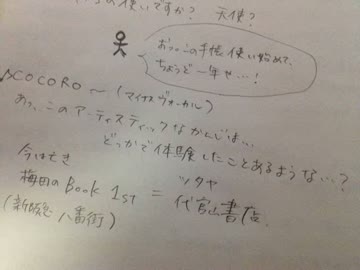 の使いですか？ 天使？
おっ。この手帳使い始めて、
ちょうど一年や…！
COCORO〜(マイナスヴォーカル)
おっ、このアーティスティックなかんじは、、
どっかで体験したことあるようない…？
今は亡き
梅田のBook 1st = 代官山書店
ツタヤ
(新阪急八番街)